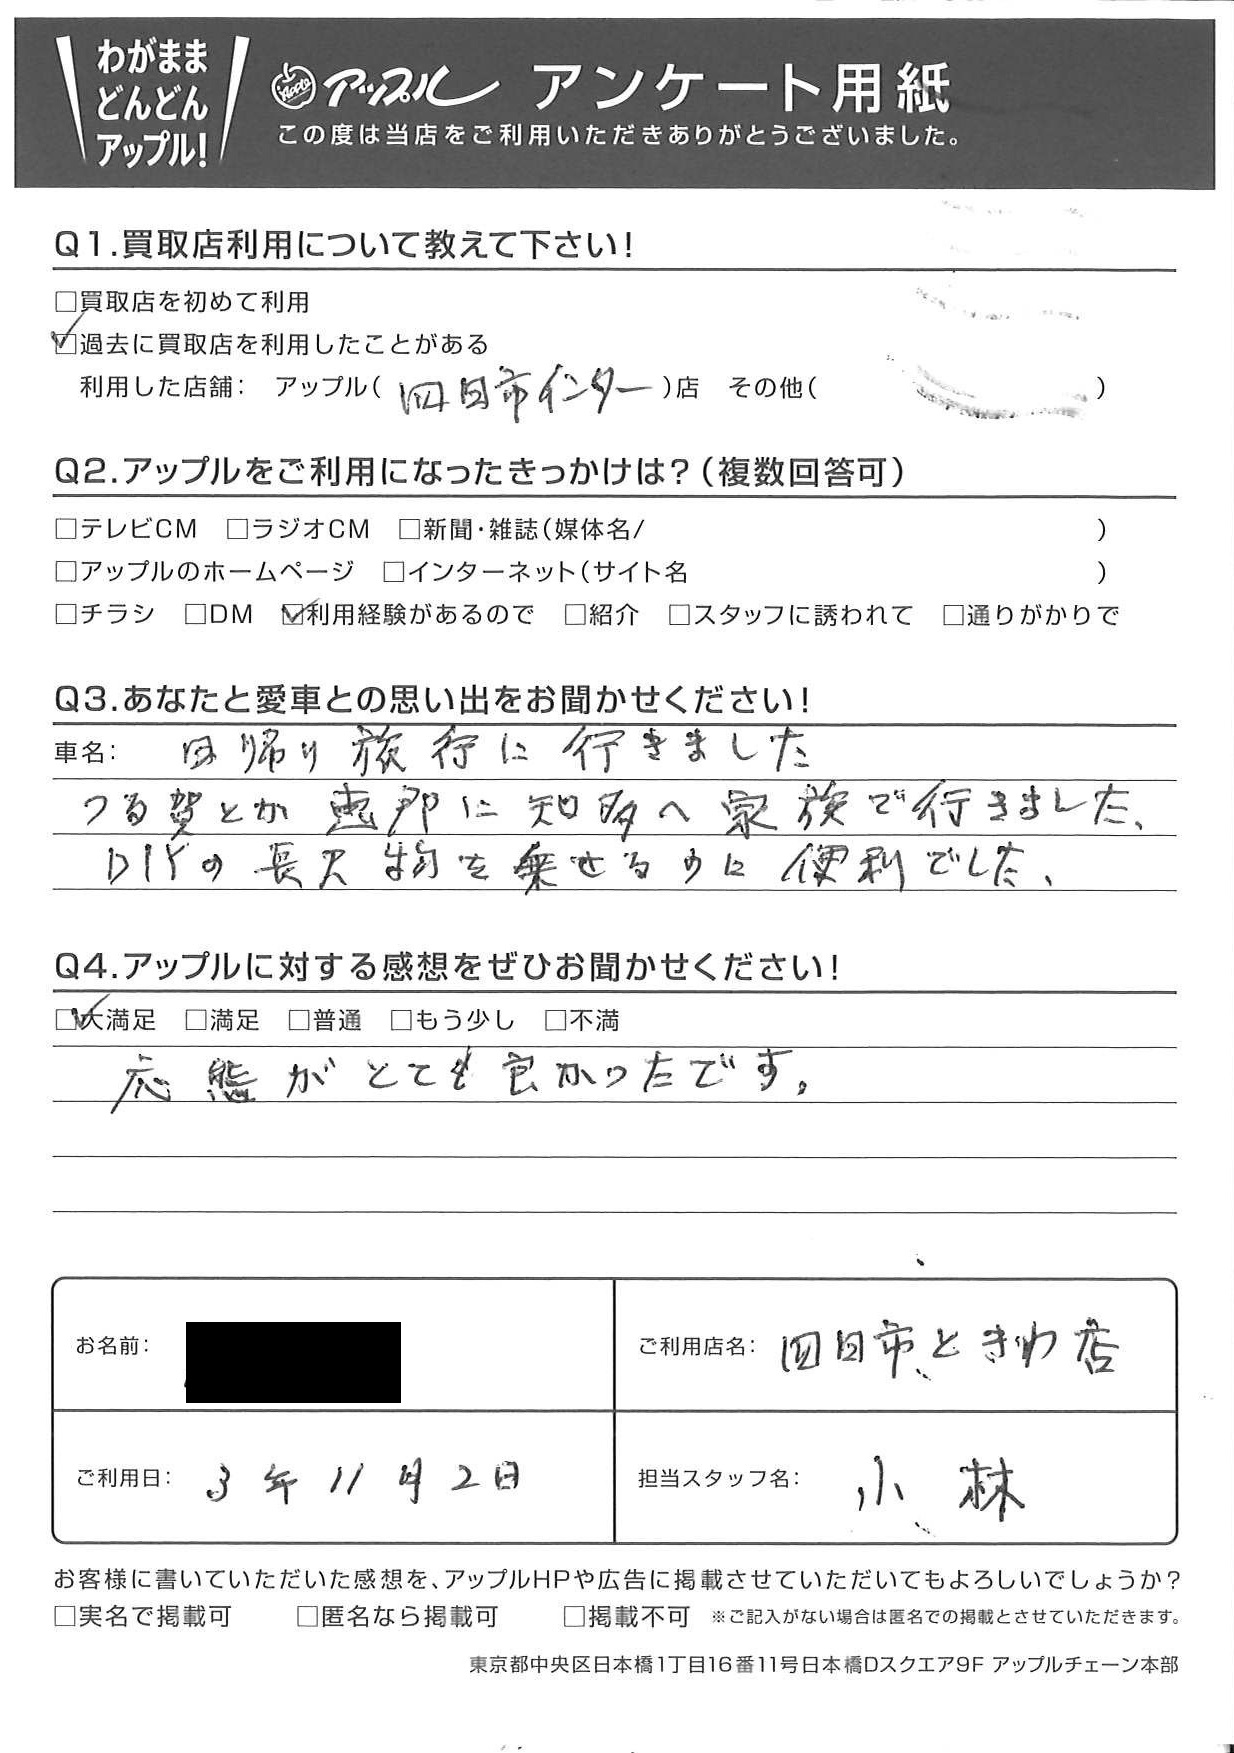 わがまま
どんどん
アップル!
Apple アップル アンケート用紙
この度は当店をご利用いただきありがとうございました。
Q1.買取店利用について教えて下さい!
□買取店を初めて利用
☑過去に買取店を利用したことがある
利用した店舗: アップル(四日市インター)店 その他( )
Q2.アップルをご利用になったきっかけは?(複数回答可)
□テレビCM □ラジオCM □新聞・雑誌(媒体名/ )
□アップルのホームページ □インターネット(サイト名 )
□チラシ □DM ☑利用経験があるので □紹介 □スタッフに誘われて □通りがかりで
Q3.あなたと愛車との思い出をお聞かせください!
車名: 日帰り旅行に行きました
つる賀とか恵那に知多へ家族で行きました、
DIYの長尺物を乗せるのに便利でした、
Q4.アップルに対する感想をぜひお聞かせください!
☑大満足 □満足 □普通 □もう少し □不満
応態がとても良かったです。
お名前:
ご利用店名: 四日市ときわ店
ご利用日: 3年11月2日
担当スタッフ名: 小林
お客様に書いていただいた感想を、アップルHPや広告に掲載させていただいてもよろしいでしょうか?
□実名で掲載可 □匿名なら掲載可 □掲載不可 ※ご記入がない場合は匿名での掲載とさせていただきます。
東京都中央区日本橋1丁目16番11号日本橋Dスクエア9F アップルチェーン本部